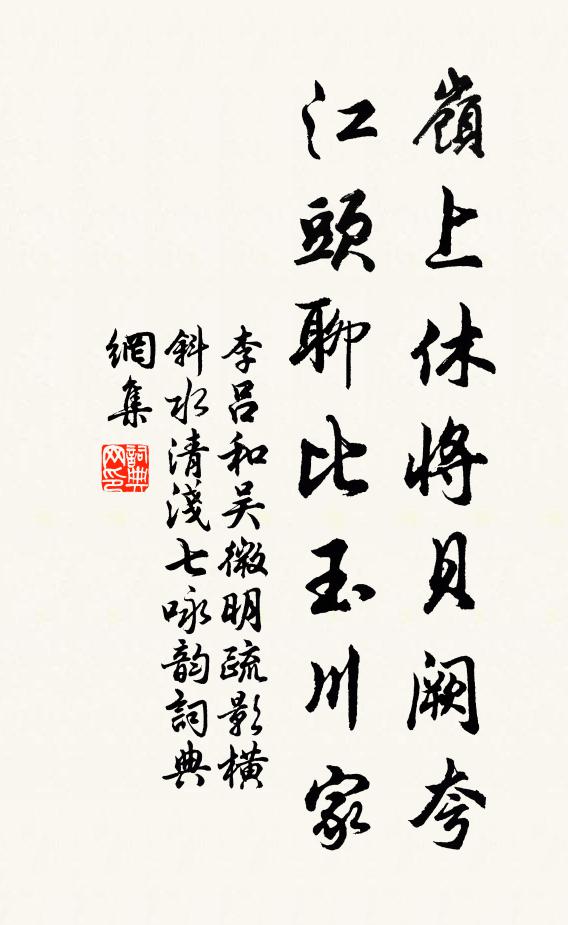 嶺上休將貝闕夸
江頭聊比玉川家
李呂和吴微明疏影橫
斜水清淺七咏韵詞典
網集
詞典
网印